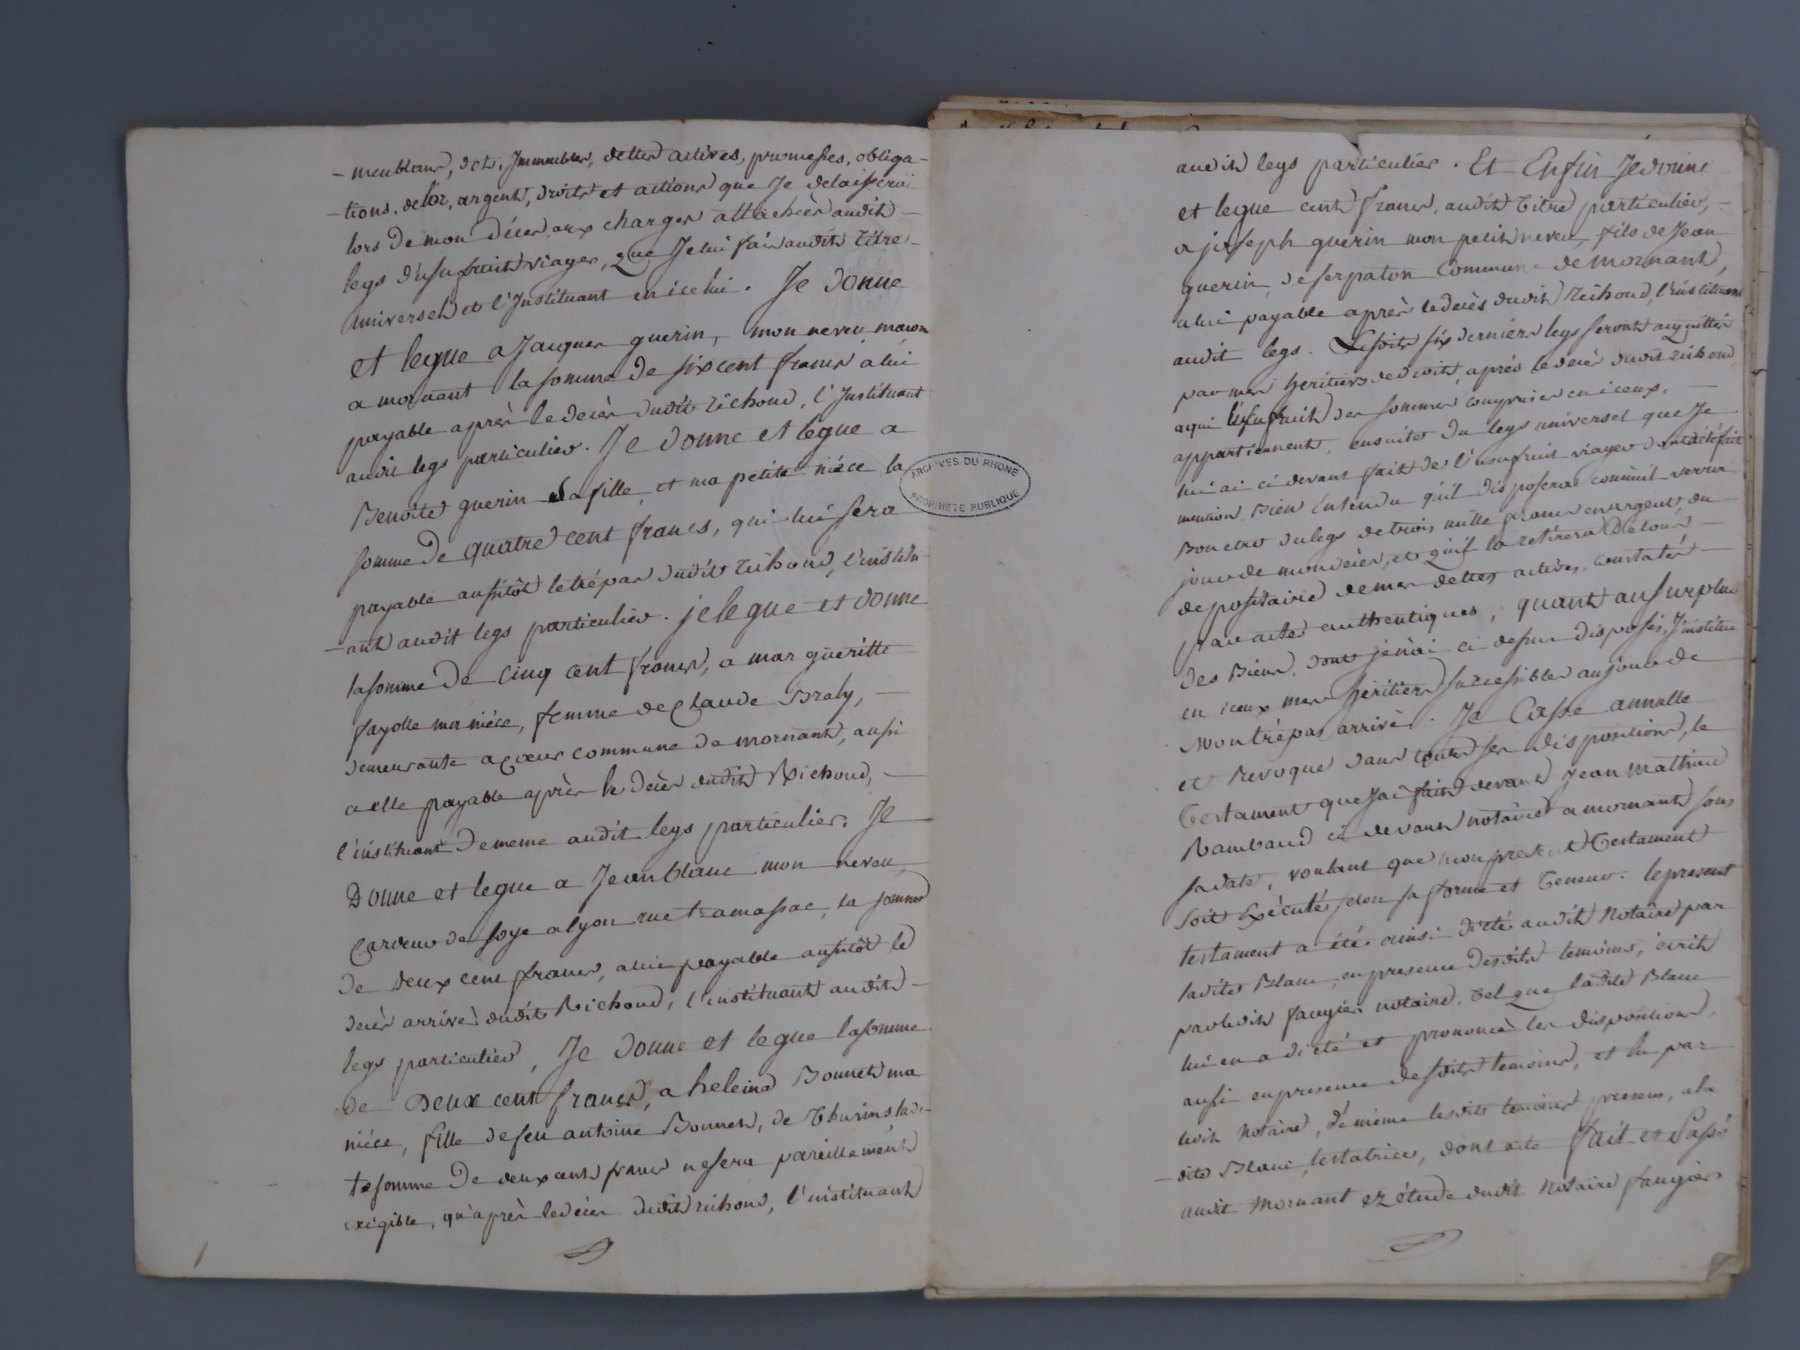 - meublant, dot, Immeubles, dettes actives, promesses, obliga-
- tions, de l'or, argent, droits et actions que Je delaisserai
lors de mon décès aux charges attachées audit -
legs d'usufruit viager, que Je lui fais audit titre -
universel et l'Instituant en icelui. Je donne
et legue a Jacques guerin, mon neveu maçon
a mornant la somme de six cent francs a lui
payable après le decès dudit Richoud, l'Instituant
audit legs particulier. Je donne et legue a
Benoîte guerin sa fille, et ma petite niéce la
somme de quatre cent francs, qui lui sera
payable aussitôt le trépas dudit Richoud, l'institu-
- ant audit legs particulier. je legue et donne
la somme de cinq cent francs, a margueritte
fayolle ma niéce, femme de Claude Braly, -
demeurante a cœur commune de mornant, aussi
a elle payable après le decès dudit Richoud, -
l'instituant de meme audit legs particulier. Je
Donne et legue a Jean blanc mon neveu
Cardeur de soye a lyon rue tramassac, la somme
de deux cent francs, a lui payable aussitôt le
decès arrivé dudit Richoud, l'instituant audit -
legs particulier, Je donne et legue la somme
de deux cent francs, a heleine Bonnet ma
niéce, fille de feu antoine Bonnet, de Thurins ladi-
te somme de deux cent francs ne sera pareillement
exigible, qu'après le decès dudit richoud, l'instituant
audit legs particulier. Et Enfin Je donne
et legue cent francs, audit titre particulier, -
a joseph guerin mon petit neveu, fils de Jean
guerin, de serpaton Commune de mornant,
a lui payable après le decès dudit Richoud, l'instituant
audit legs. Lesdits six derniers legs seront acquittés
par mes heritiers de droit, après le decès dudit Richoud
a qui l'usufruit des sommes comprises en iceux, -
appartiennent, ensuite du legs universel que Je
lui ai ci devant fait de l'usufruit viager dont a été fait
mention. Bien Entendu qu'il disposera comme il verra
Bon etre du legs de trois mille francs en argent, du
jour de mon decès, et qu'il la retirera de tous -
depositaires de mes dettes actives, constatés -
par actes authentiques, quant au surplus
des Biens, dont je n'ai ci dessus disposés, J'institue
en iceux mes héritiers successibles au jour de
mon trépas arrivé. Je Casse annulle
et Revoque dans toutes ses dispositions, le
Testament que j'ai fait devant Jean Mathieu
Rambaud ci devant notaire a mornant sous
sa date, voulant que mon present Testament
soit Exécuté selon sa forme et teneur. le present
testament a été ainsi dicté audit Notaire par
ladite Blanc, en presence desdits temoins, écrit
par ledit faugier notaire, tel que ladite Blanc
lui en a dicté et prononcé les dispositions,
aussi en presence desdits temoins, et lu par
ledit Notaire, de même lesdits temoins presens, a la
- dite Blanc, testatrice, dont acte fait et Passé
audit Mornant ez étude dudit Notaire faugier
ARCHIVES DU RHONE
PROPRIETE PUBLIQUE